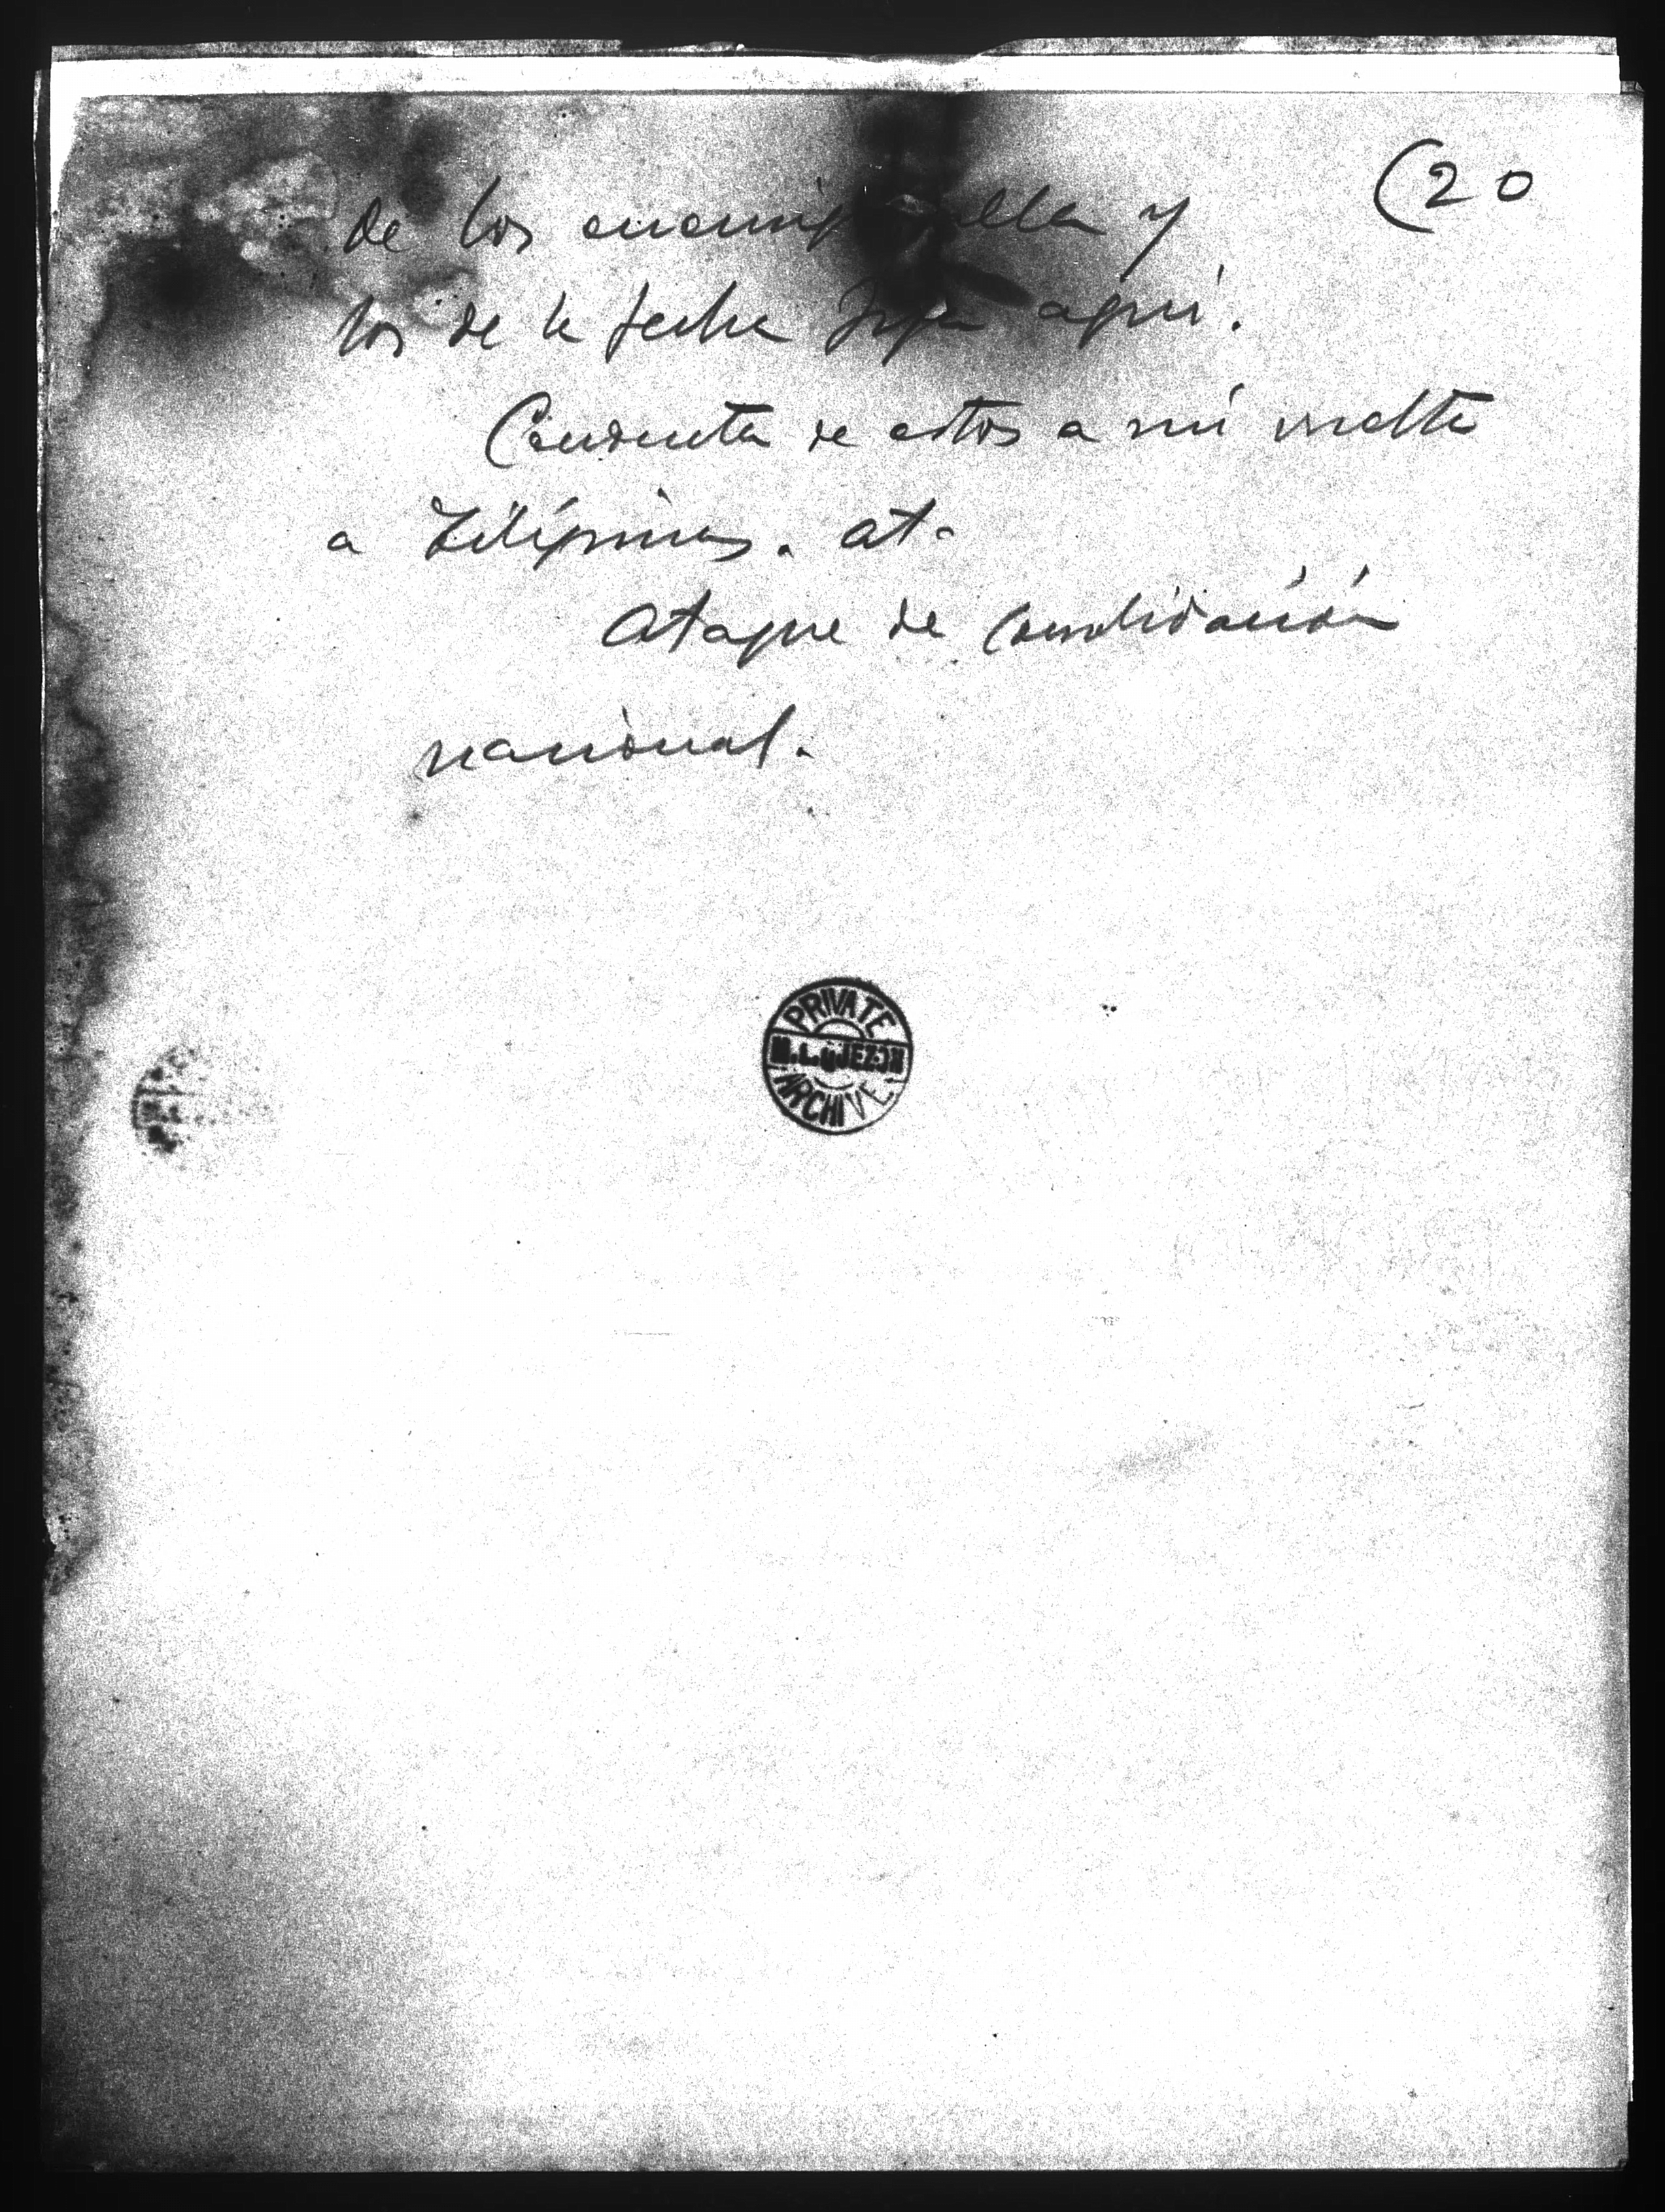 (20
de los enemig ella y
los de la fecha aquí.
Conducta de estos a mi vuelta
a Filipinas. at.
Ataque de Consolidación
nacional.
PRIVATE
M.L.QUEZON
ARCHIVE